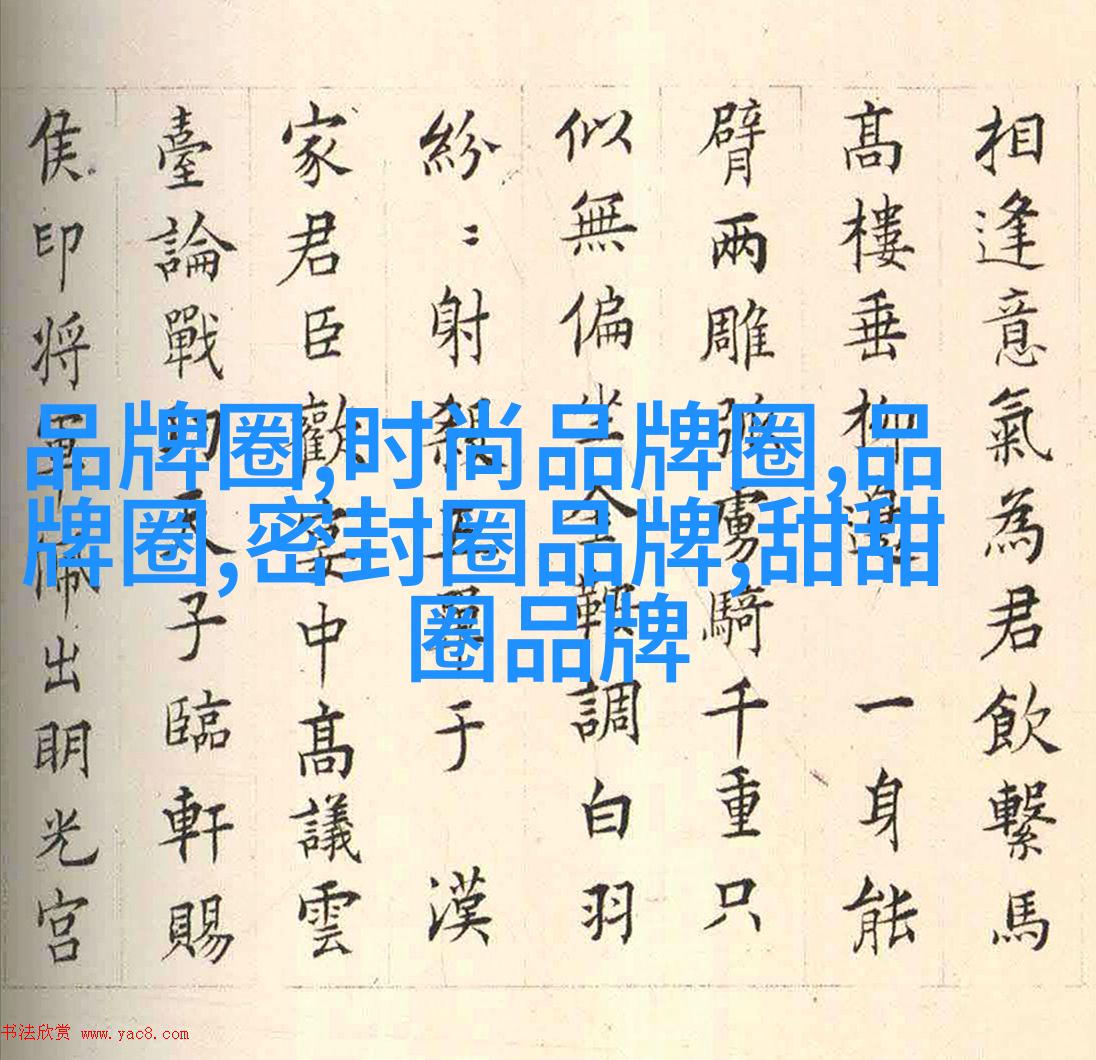 相逢意氣為君飲繫馬
高樓垂柳邊 一身能
臂兩雕弧虜騎千重只
似無偏坐金鞍調白羽
紛〻射殺五單于 漢
家君臣歡宴中高議雲
臺論戰功天子臨軒賜
侯印将軍佩出明光宮
品牌圈,时尚品牌圈,品
牌圈,密封圈品牌,甜甜
圈品牌
书法欣赏 www.yac8.com